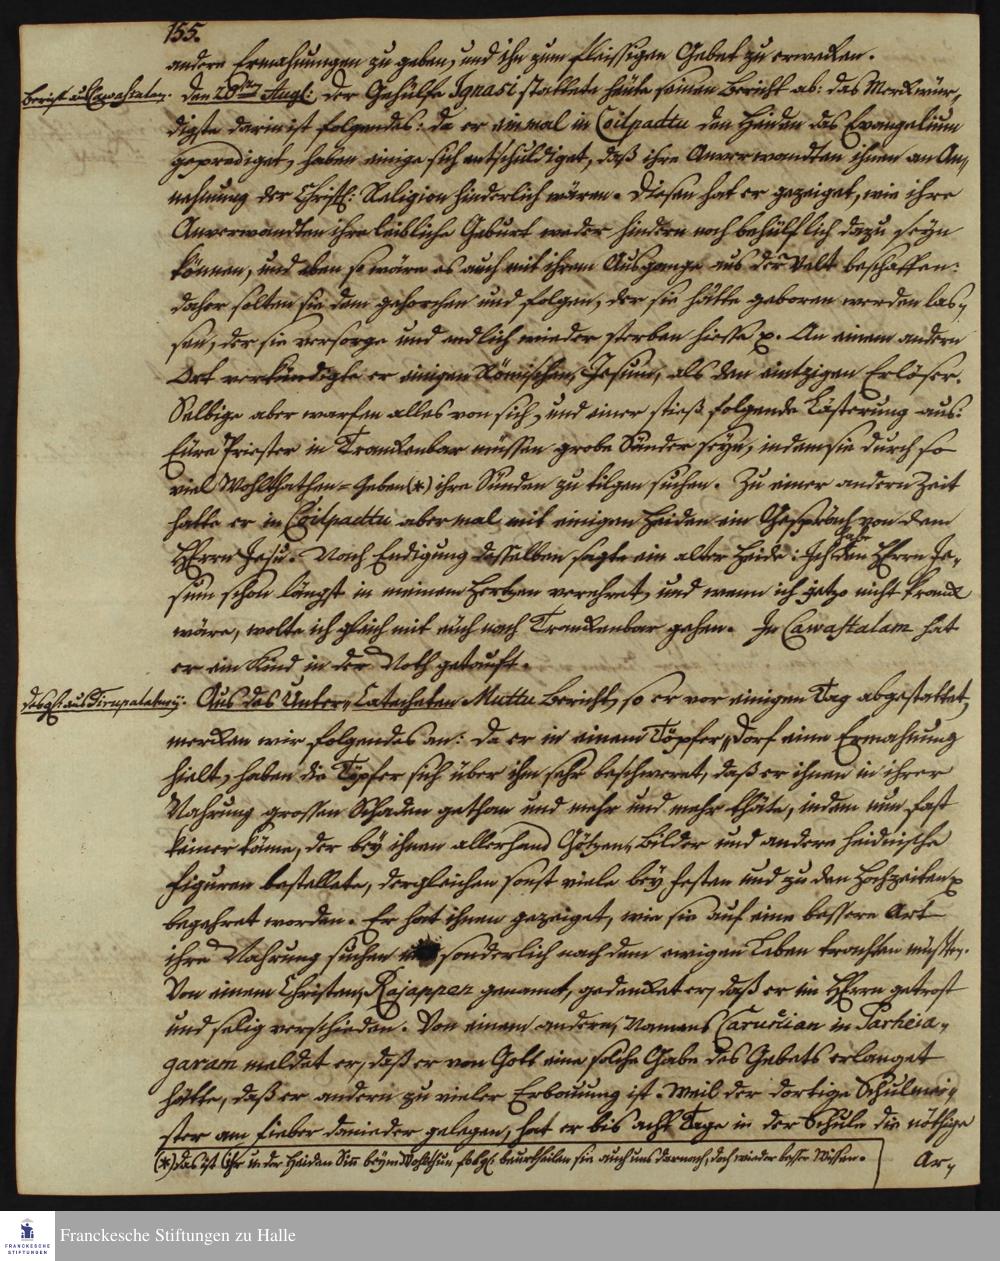 155.
andere Ermahnungen zu geben, und ihn zum fleissigen Gebet zu erwecken.
Bericht aus Cawastalam.
Den 28ten Augt: Der Gehülfe Ignasi stattete heute seinen Bericht ab: das Merckwür-
digste darin ist folgendes: da er einmal in Coilpadtu den Heiden das Evangelium
geprediget, haben einige sich entschuldiget, daß ihre Anverwandten ihnen an An-
nehmung der Christl: Religion hinderlich wären. Diesen hat er gezeiget, wie ihre
Anverwandten ihre leibliche Geburt weder hindern noch behülflich dazu seyn
können, und eben so wäre es auch mit ihrem Ausgange aus der Welt beschaffen:
daher solten sie dem gehorchen und folgen, der sie hätte geboren werden las-
sen, der sie versorge und endlich wieder sterben hiesse p. An einem andern
Ort verkündigte er einigen Römischen, Jesum, als den eintzigen Erlöser.
Selbige aber warfen alles von sich, und einer stieß folgende Lästerung aus:
Eüre Priester in Tranckenbar müssen grobe Sünder seyn, indem sie durch so
viel Wohlthathen-Geben (*) ihre Sünden zu tilgen suchen. Zu einer andern Zeit
hatte er in Coilpadtu abermal mit einigen Heiden ein Gespräch von dem
HErrn Jesu. Nach Endigung desselben sagte ein alter Heide: Ich habe den HErrn Je-
sum schon längst in meinem Hertzen verehret, und wenn ich jetzo nicht kranck
wäre, wolte ich gleich mit euch nach Tranckenbar gehen. In Cawastalam hat
er ein Kind in der Noth getauft.
desgl: aus Tirupalaturey.
Aus des Unter-Catecheten Muttu Bericht, so er vor einigen Tag abgestattet,
mercken wir folgendes an: Da er in einem Töpfer-Dorf eine Ermahnung
hielt, haben die Töpfer sich über ihm sehr beschweret, daß er ihnen in ihrer
Nahrung grossen Schaden gethan und mehr und mehr thäte, indem nun fast
keiner käme, der bey ihnen allerhand Götzen-Bilder und andere heidnische
Figuren bestellete, dergleichen sonst viele bey Festen und zu den Hochzeiten p
begehret worden. Er hat ihnen gezeiget, wie sie auf eine bessere Art
ihre Nahrung suchen sonderlich nach dem ewigen Leben trachten müsten.
Von einem Christen, Rajappen genannt, gedencket er, daß er im HErrn getrost
und selig verschieden. Von einem andern, Namens Caruttian in
garam meldet er, daß er von Gott eine solche Gabe des Gebets erlanget
hätte, daß er andern zu vieler Erbauung ist. Weil der dortige Schulmei-
ster am Fieber danieder gelegen, hat er bis acht Tage in der Schule die nöthige
(*) Das ist der Heiden Sinn beym Wohlthun folgl: beurtheilen sie auch uns darnach, doch wieder besser Wissen.
Ar-
Franckesche Stiftungen zu Halle
FRANCKESCHE
STIFTUNGEN